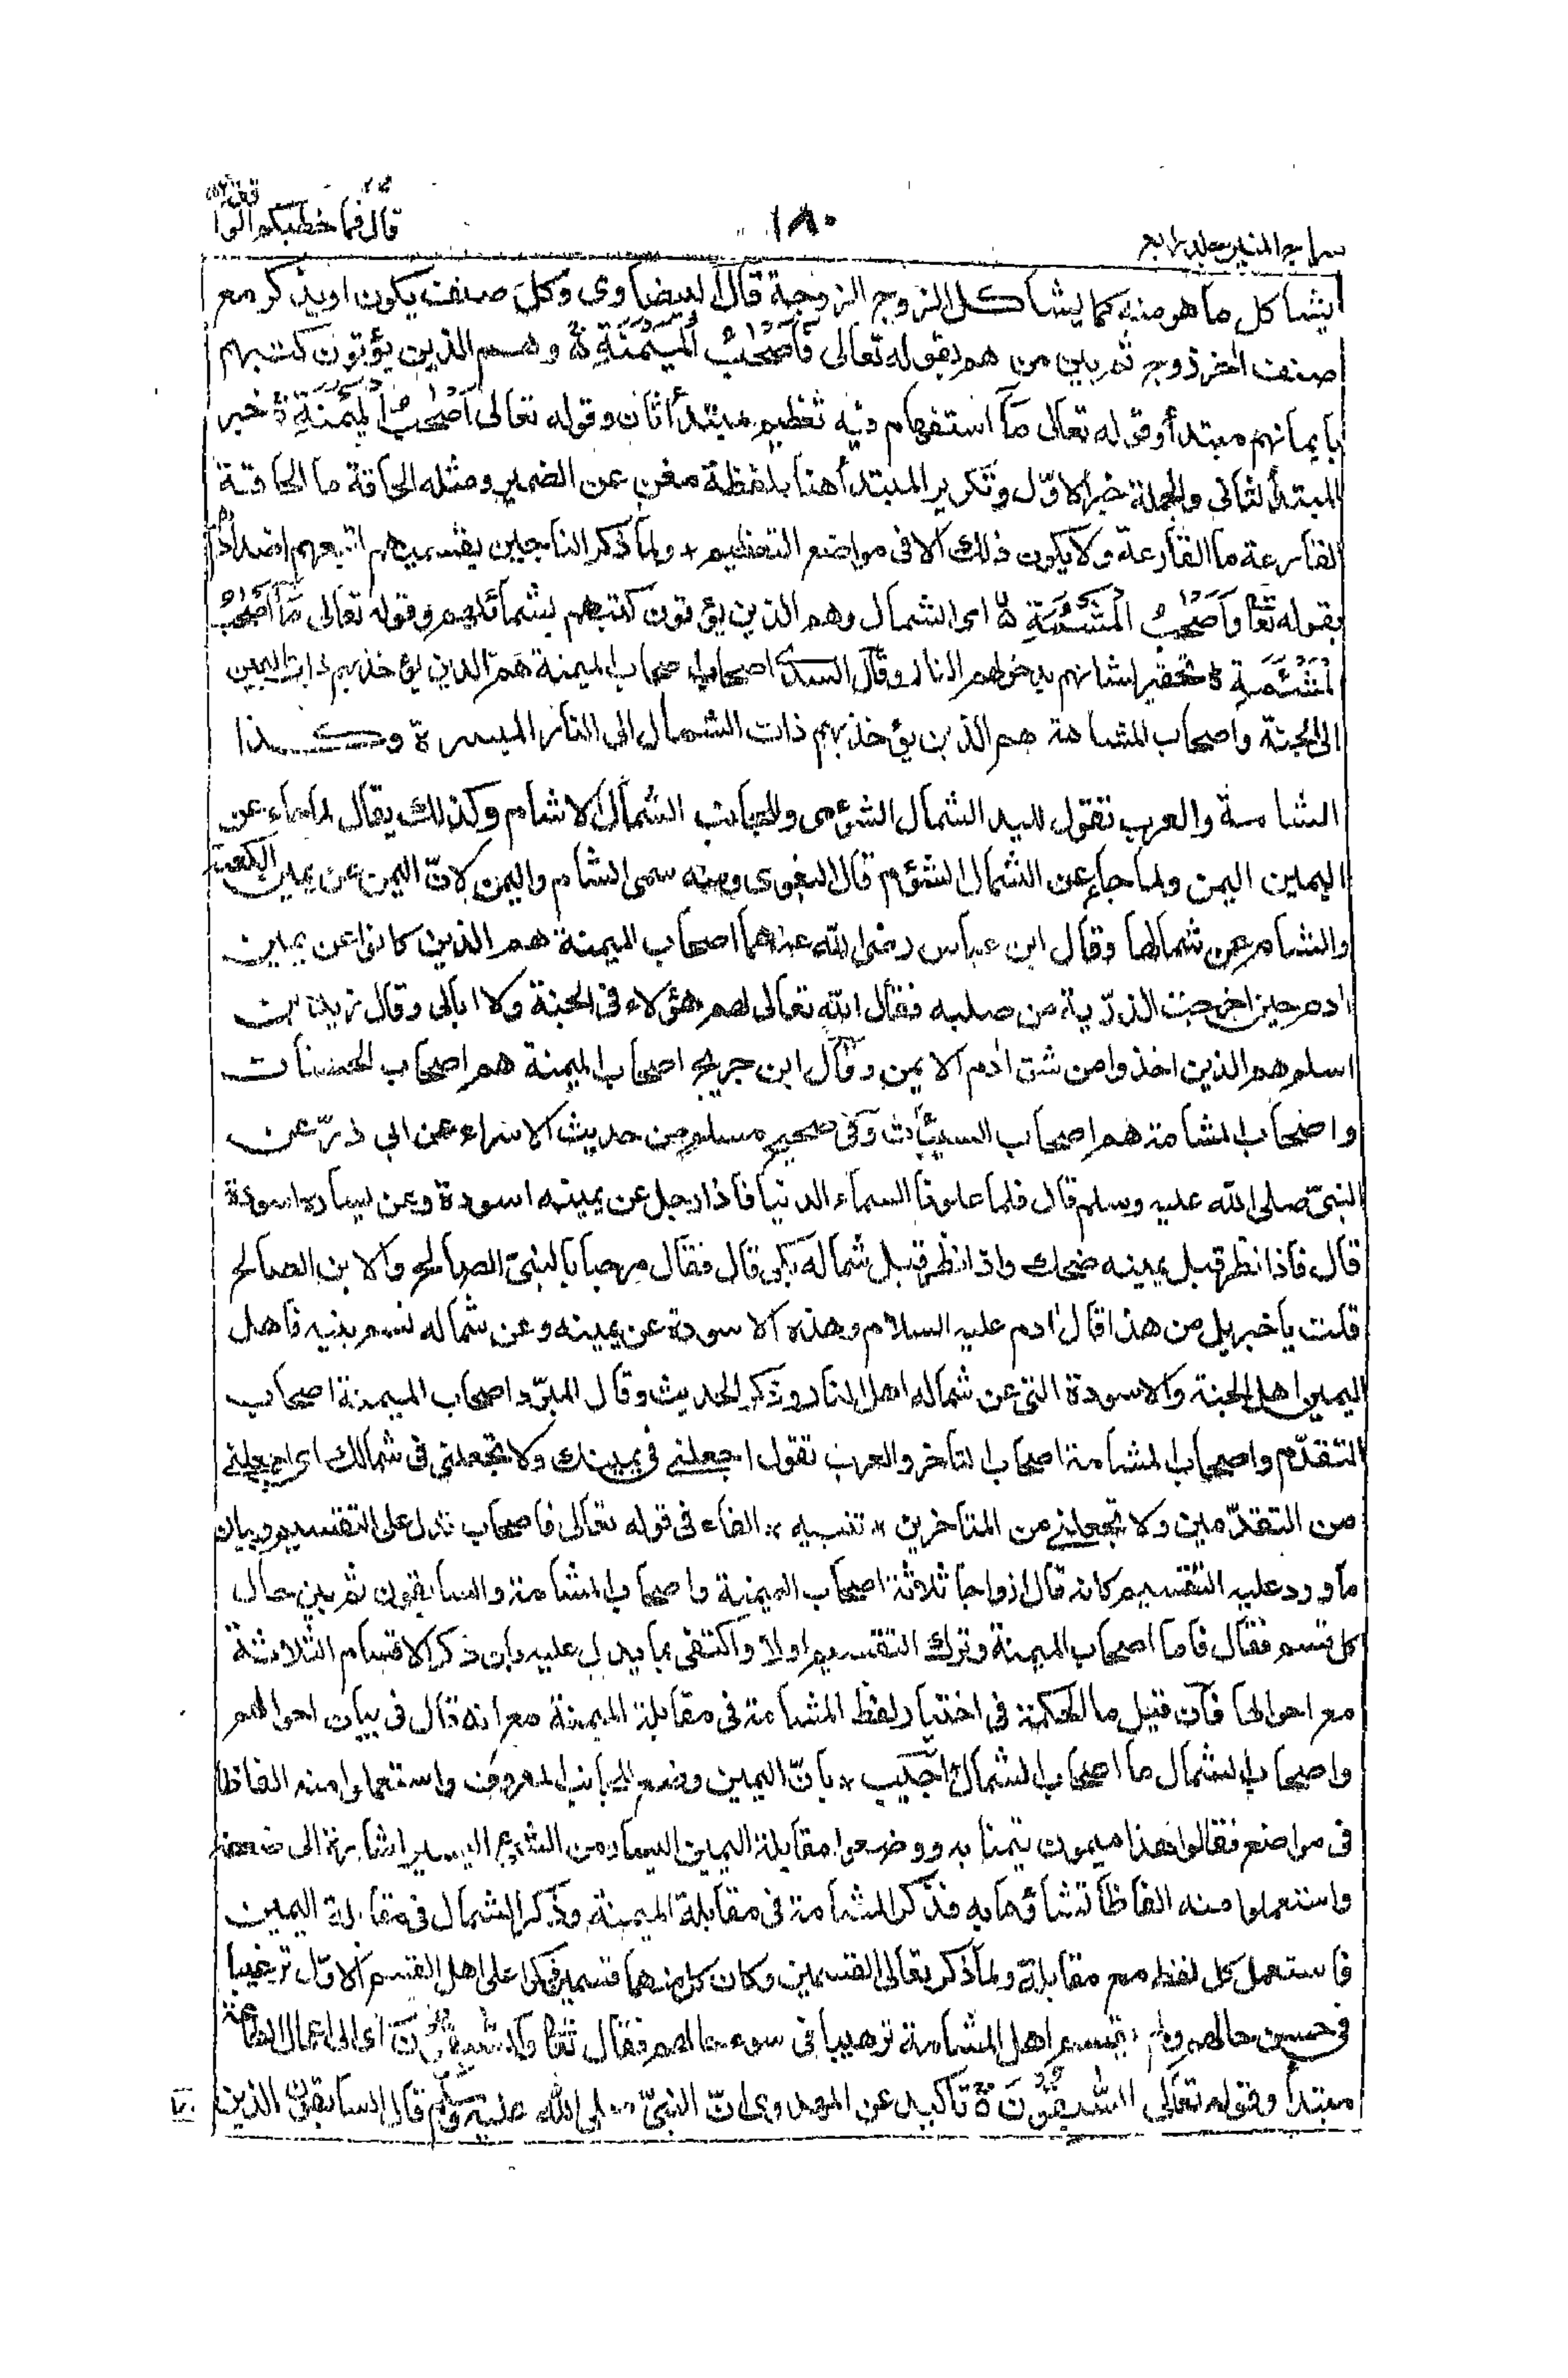 سراج المنير جلد رابع
١٨٠
قال فما خطبكم الواقعة
يشاكل ما هو منه كما يشاكل الزوج الزوجة قال البيضاوى وكل صنف يكون او يذكر مع
صنف اٰخر زوج ثم بين من هم بقوله تعالى فَاَصْحٰبُ الْمَيْمَنَةِ ۵ وهم الذين يؤتون كتبهم
بايمانهم مبتدأ وقوله تعالى مَآ استفهام فيه تعظيم مبتدأ ثان وقوله تعالى اَصْحٰبُ الْمَيْمَنَةِ ۵ خبر
المبتدأ الثانى والجملة خبر الاوّل وتكرير المبتدأ هنا بلفظة مغن عن الضمير ومثله الحاقة ما الحاقة
القارعة ما القارعة ولا يكون ذلك الا فى مواضع التعظيم ÷ ولما ذكر الناجين بقسميهم اتبعهم اضدادهم
بقوله تعا وَاَصْحٰبُ الْمَشْئَمَةِ ۵ اى الشمال وهم الذين يؤتون كتبهم بشمائلهم وقوله تعالى مَآ اَصْحٰبُ
الْمَشْئَمَةِ ۵ تحقير لشانهم بدخولهم النار وقال السدى اصحاب الميمنة هم الذين يؤخذ بهم ذات اليمين
الى الجنة واصحاب المشامة هم الذين يؤخذ بهم ذات الشمال الى النار الميسرة وكذا
الشامة والعرب تقول لليد الشمال الشؤمى وللجانب الشمال الاشام وكذلك يقال لما جاء عن
اليمين اليمن ولما جاء عن الشمال الشؤم قال البغوى ومنه سمى الشام واليمن لانّ اليمن عن يمين الكعبة
والشام عن شمالها وقال ابن عباس رضى الله عنهما اصحاب الميمنة هم الذين كانوا عن يمين
اٰدم حين اخرجت الذرّية من صلبه فقال الله تعالى لهم هؤلاء فى الجنة ولا ابالى وقال زيد بن
اسلم هم الذين اخذوا من شق اٰدم الايمن وقال ابن جريج اصحاب الميمنة هم اصحاب الحسنات
واصحاب المشامة هم اصحاب السيئات وفى صحيح مسلم من حديث الاسراء عن ابى ذرّ عن
النبىّ صلى الله عليه وسلم قال فلما علونا السماء الدنيا فاذا رجل عن يمينه اسودة وعن يساره اسودة
قال فاذا نظر قبل يمينه ضحك واذا نظر قبل شماله بكى قال فقال مرحبا بالنبىّ الصالح والابن الصالح
قلت يا جبريل من هذا قال اٰدم عليه السلام وهذه الاسودة عن يمينه وعن شماله نسم بنيه فاهل
اليمين اهل الجنة والاسودة التى عن شماله اهل النار وذكر الحديث وقال المبرّد اصحاب الميمنة اصحاب
التقدّم واصحاب المشامة اصحاب التاخر والعرب تقول اجعلنى فى يمينك ولا تجعلنى فى شمالك اى اجعلنى
من المتقدّمين ولا تجعلنى من المتاخرين * تنبيه * الفاء فى قوله تعالى فاصحاب تدل على التقسيم وبيان
ما ورد عليه التقسيم كانه قال ازواجا ثلاثة اصحاب الميمنة واصحاب المشامة والسابقون ثم بين حال
كل قسم فقال فاما اصحاب الميمنة وترك التقسيم اولا واكتفى بما يدل عليه بان ذكر الاقسام الثلاثة
مع احوالها فان قيل ما الحكمة فى اختيار لفظ المشامة فى مقابلة الميمنة مع انه قال فى بيان احوالهم
واصحاب الشمال ما اصحاب الشمال اجيب * بانّ اليمين وضع للجانب المعروف واستعملوا منه الفاظا
فى مواضع فقالوا هذا ميمون تيمنا به ووضعوا مقابلة اليمين اليسار من الشىء اليسير اشارة الى ضعفه
واستعملوا منه الفاظا تشاؤما به فذكر المشامة فى مقابلة الميمنة وذكر الشمال فى مقابلة اليمين
فاستعمل كل لفظ مع مقابلة ولما ذكر تعالى القسمين وكان كل منهما قسمين فكرر على اهل القسم الاوّل ترغيبا
فى حسن حالهم ولم يقسم اهل المشامة ترهيبا فى سوء حالهم فقال تعا وَالسّٰبِقُوْنَ اى الى اعمال الطاعة
مبتدأ وقوله تعالى السّٰبِقُوْنَ ۵ تاكيد عن المهدوى انّ النبىّ صلى الله عليه وسلم قال السابقون الذين